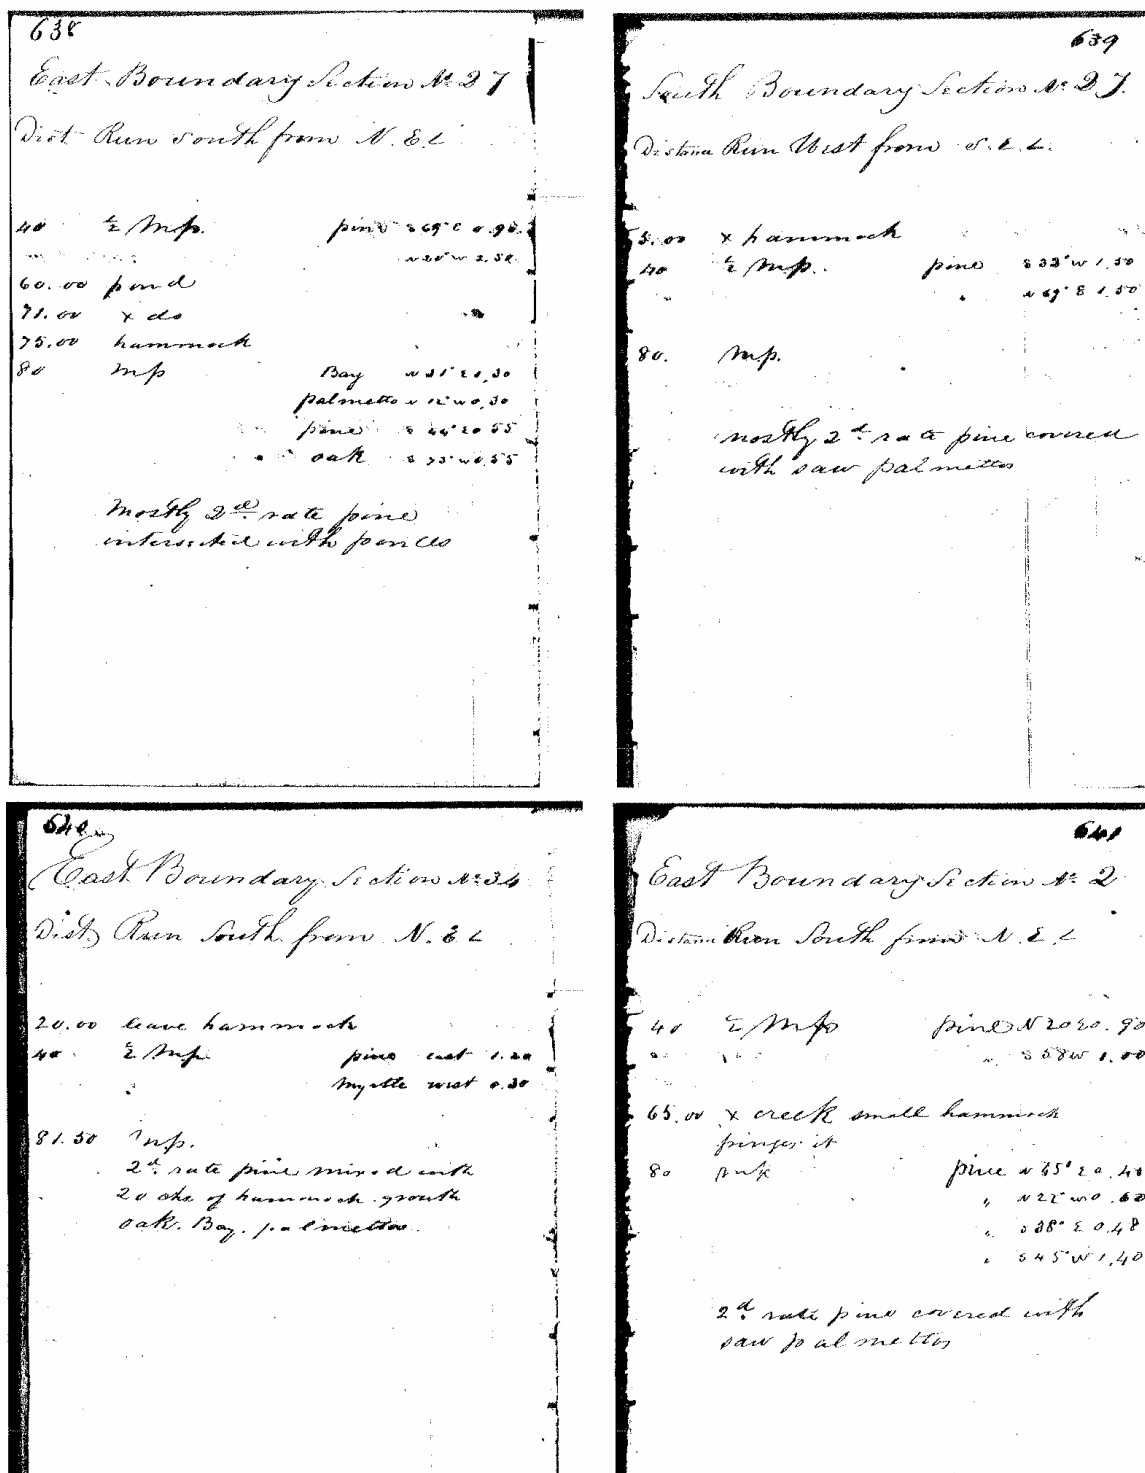 638
East Boundary Section No 27
Dist Run South from N. E. C
40 ½ m.p. pine S 69° E 0.90
N 20° W 2.50
60.00 pond
71.00 x do
75.00 hammock
80 mp Bay N 31° E 0,30
palmetto N 12° W 0,30
pine S 44° E 0 55
" oak S 73° W 0,55
Mostly 2d rate pine
intersected with ponds
639
South Boundary Section No 27.
Distance Run West from S. E. C.
5.00 x hammock
40 ½ m.p. pine S 33° W 1,50
" N 69° E 1,50
80. m.p.
mostly 2d rate pine covered
with saw palmettos
640
East Boundary Section No 34
Dist Run South from N. E C
20.00 leave hammock
40 ½ m.p. pine east 1.20
Myrtle west 0.30
81.50 m.p.
2d rate pine mixed with
20 chs of hammock growth
oak. Bay. palmettos.
641
East Boundary Section No 2
Distance Run South from N. E. C
40 ½ mp pine N 20 E 0. 90
" S 58 W 1.00
65.00 x creek small hammock
fringes it
80 mp pine N 65° E 0,40
" N 22° W 0.60
" S 38° E 0.48
" S 45° W 1,40
2d rate pine covered with
saw palmettos